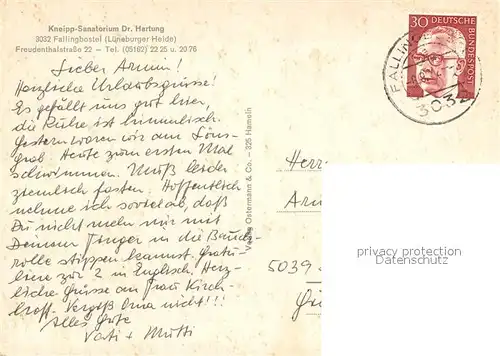 Kneipp-Sanatorium Dr. Hartung
3032 Fallingbostel (Lüneburger Heide)
Freudenthalstraße 22 – Tel. (05162) 22 25 u. 20 76
Lieber Armin!
Herzliche Urlaubsgrüsse!
Es gefällt uns gut hier,
die Ruhe ist himmlisch.
Gestern waren wir am Löns-
grab. Heute zum ersten Mal
schwimmen. Muß leider
ziemlich fasten. Hoffentlich
nehme ich soviel ab, daß
Du nicht mehr nur mit
Deinem Finger in die Bauch-
rolle stippen kannst. Gratu-
liere zur 2 in Englisch. Herz-
liche Grüsse an Frau Kirch-
hoff. Vergiß Oma nicht!!!
Alles Gute
Vati + Mutti
Verlag Ostermann & Co. – 325 Hameln
30 DEUTSCHE
BUNDESPOST
FALLING
3032
Herr
Arm
5039
privacy protection
Datenschutz